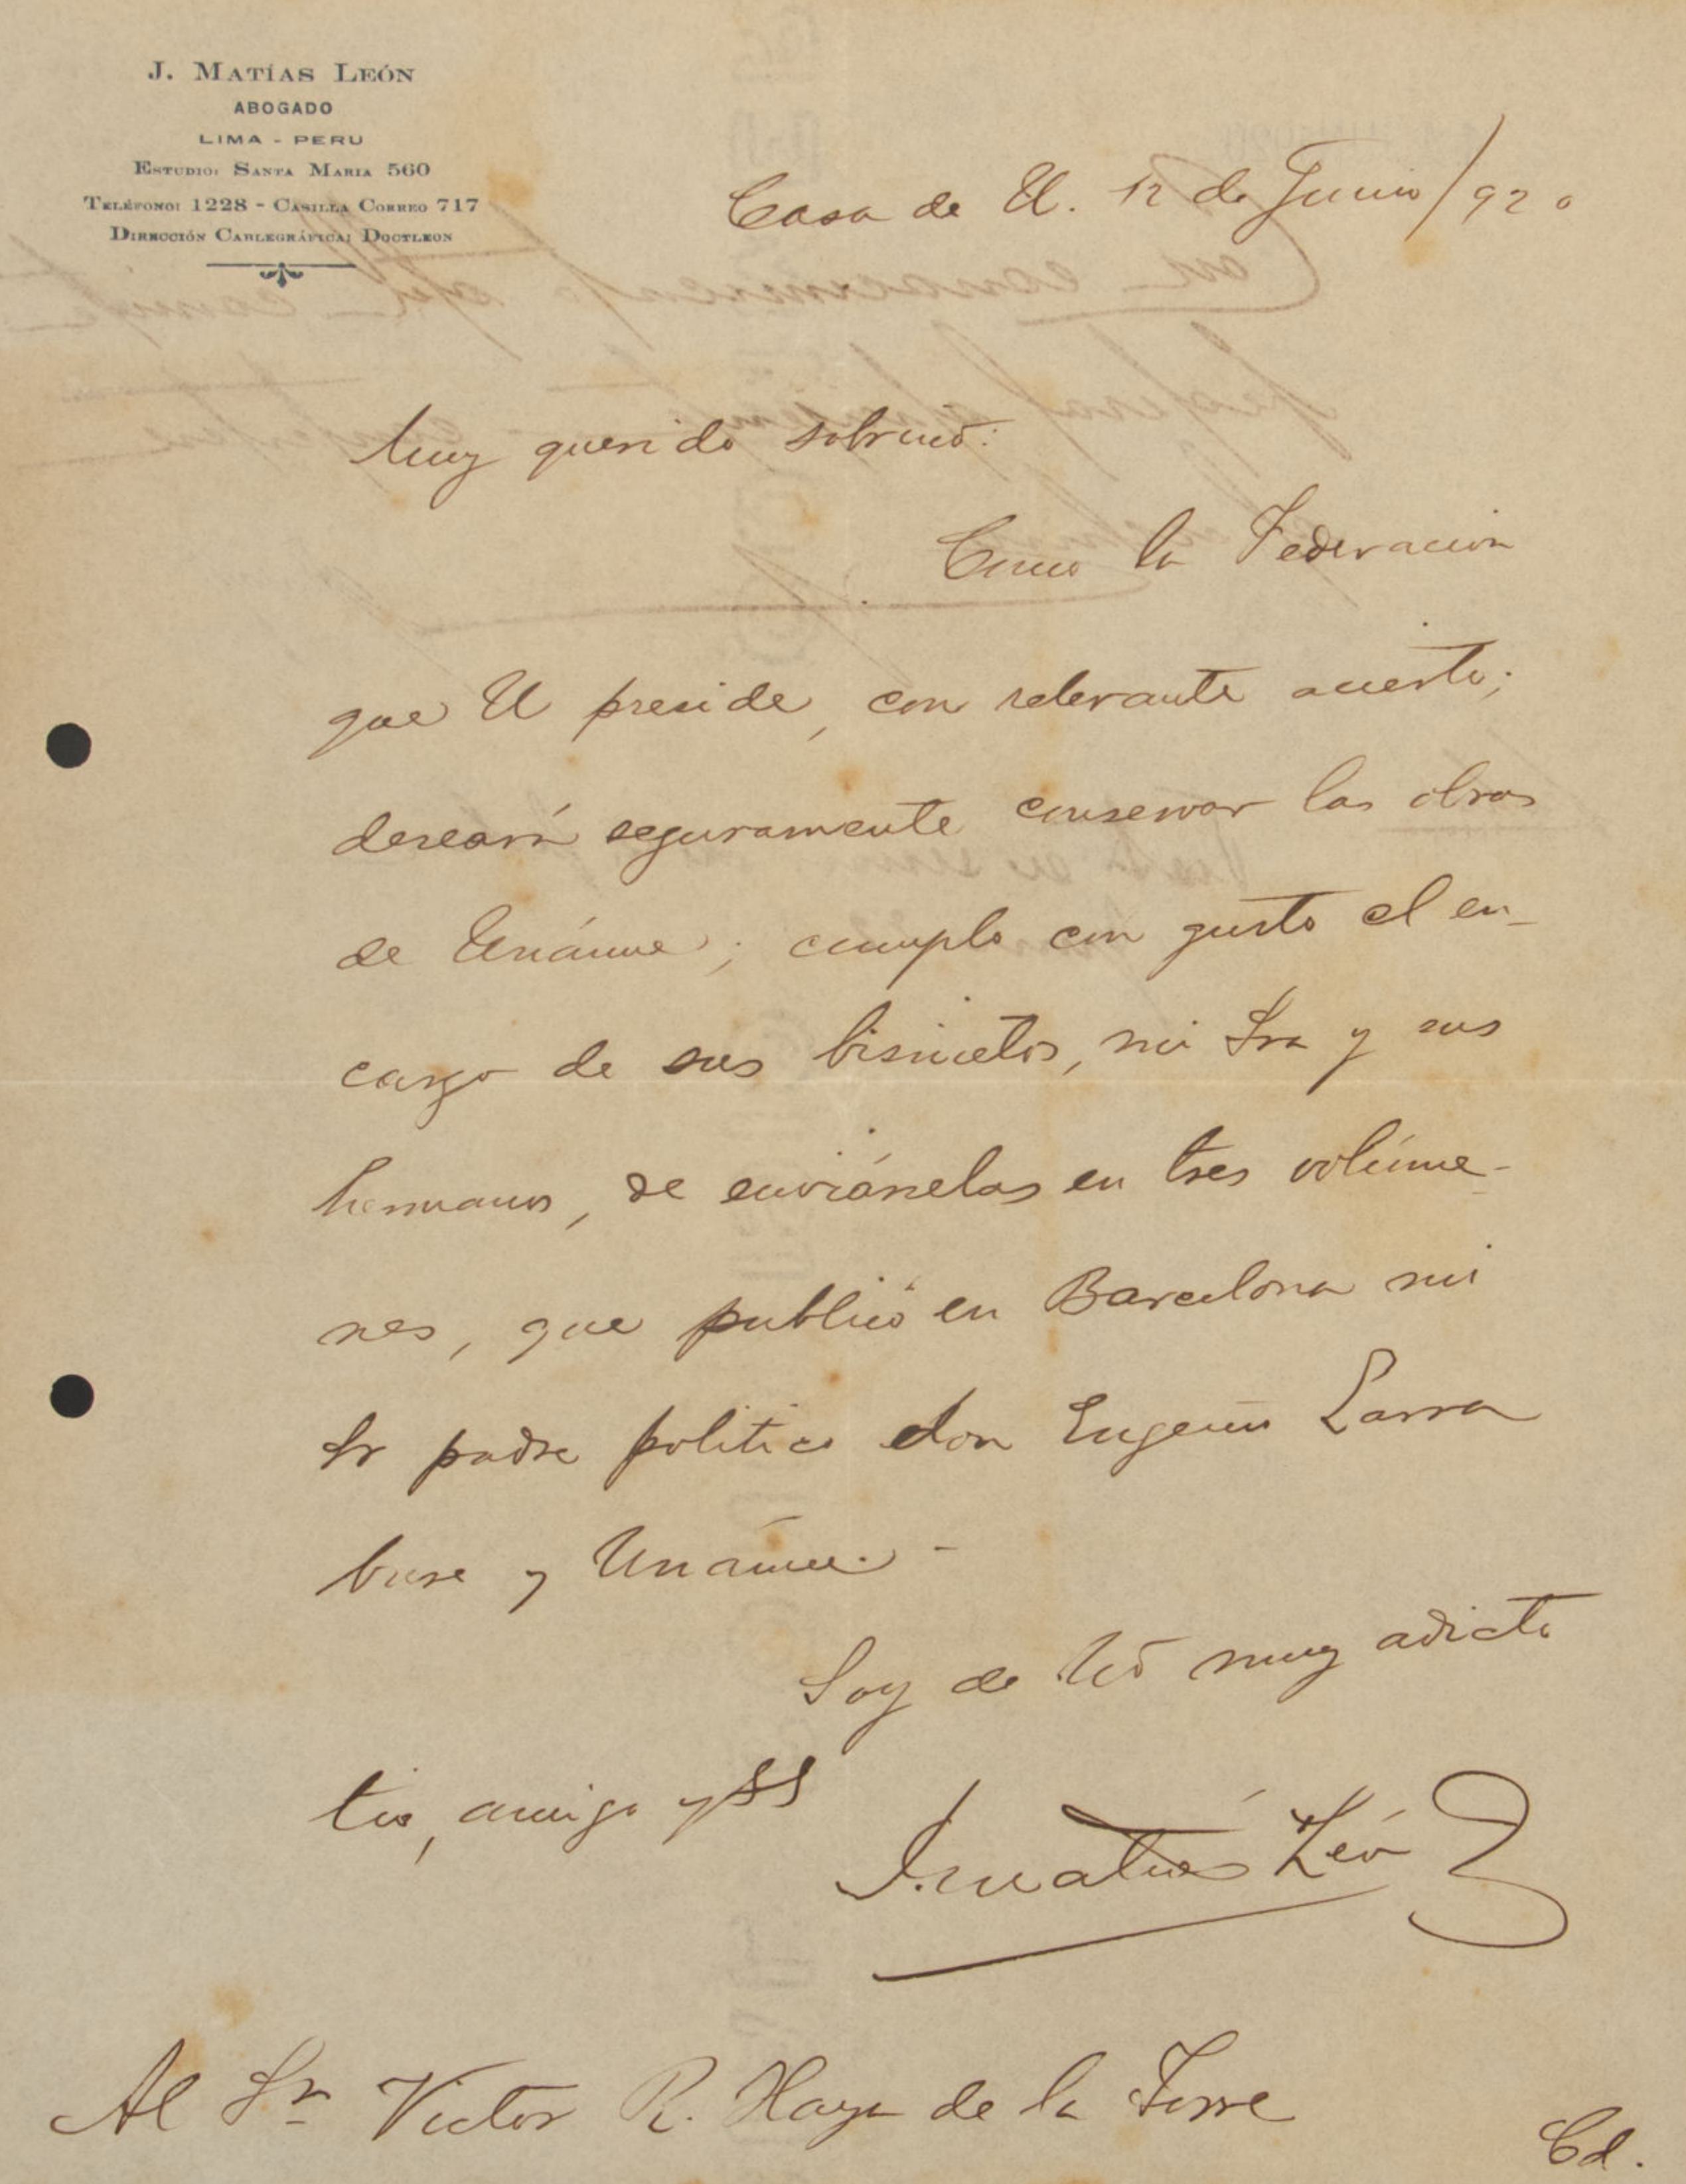 J. MATÍAS LEÓN
ABOGADO
LIMA - PERU
ESTUDIO: SANTA MARIA 560
TELÉFONO: 1228 - CASILLA CORREO 717
DIRECCIÓN CABLEGRÁFICA: DOCTLEON
Casa de U. 12 de Junio/920
Muy querido sobrino:
Como la Federacion
que U preside, con relevante acierto;
deseará seguramente conservar las obras
de Unánue; cumplo con gusto el en-
cargo de sus bisnietos, mi Sra y sus
hermanos, de enviárselas en tres volúme-
nes, que publicó en Barcelona mi
Sr padre politico don Eugenio Larra
bure y Unánue.-
Soy de Ud muy adicto
tio, amigo y SS
J. Matías León
Al Sr Victor R. Haya de la Torre
Cd.